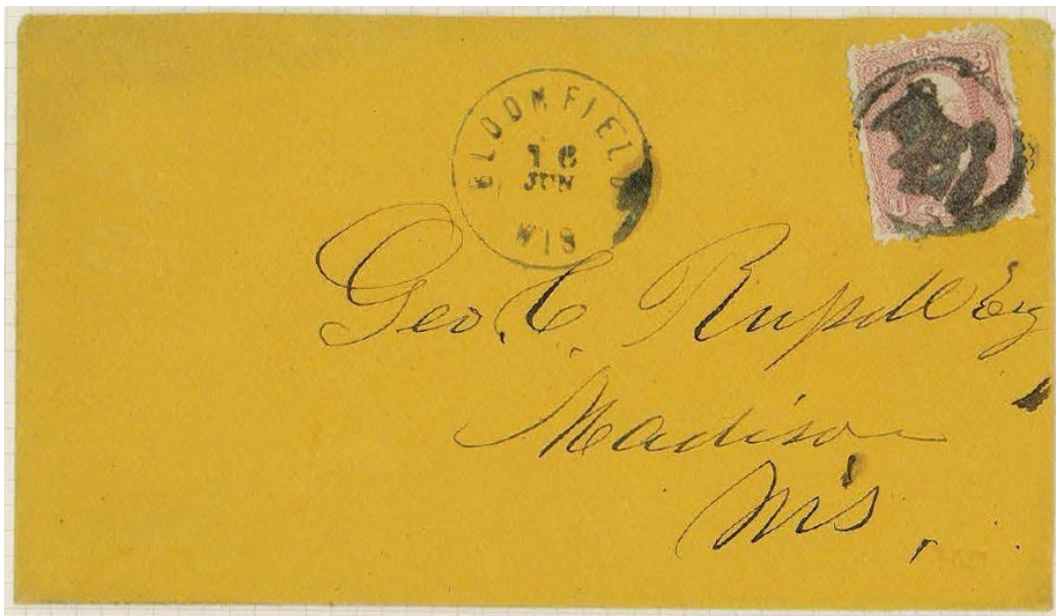 BLOOMFIELD
16
JUN
WIS
U.S.
Geo. C. Russell Esq
Madison
Wis.